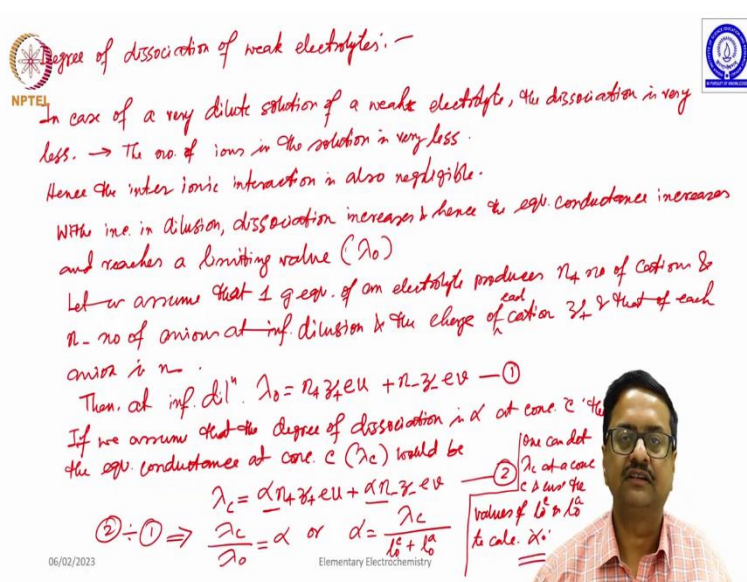 Degree of dissociation of weak electrolytes:-
NPTEL
In case of a very dilute solution of a weak electrolyte, the dissociation is very
less. → The no. of ions in the solution is very less.
Hence the inter ionic interaction is also negligible.
With inc. in dilution, dissociation increases & hence the eqv. conductance increases
and reaches a limiting value (λ₀)
Let us assume that 1 g eqv. of an electrolyte produces n₊ no of cations &
n₋ no of anions at inf. dilution & the charge of each cation z₊ & that of each
anion is n₋.
Then, at inf. dilⁿ. λ₀ = n₊z₊eu + n₋z₋ev — ①
If we assume that the degree of dissociation is α at conc. c
the eqv. conductance at conc. c (λc) would be
λc = αn₊z₊eu + αn₋z₋ev — ②
② ÷ ① ⇒ λc/λ₀ = α or α = λc/(l₀ᶜ + l₀ᵃ)
One can det
λc at a conc
c & use the
values of l₀ᶜ & l₀ᵃ
to calc. α.
06/02/2023
Elementary Electrochemistry